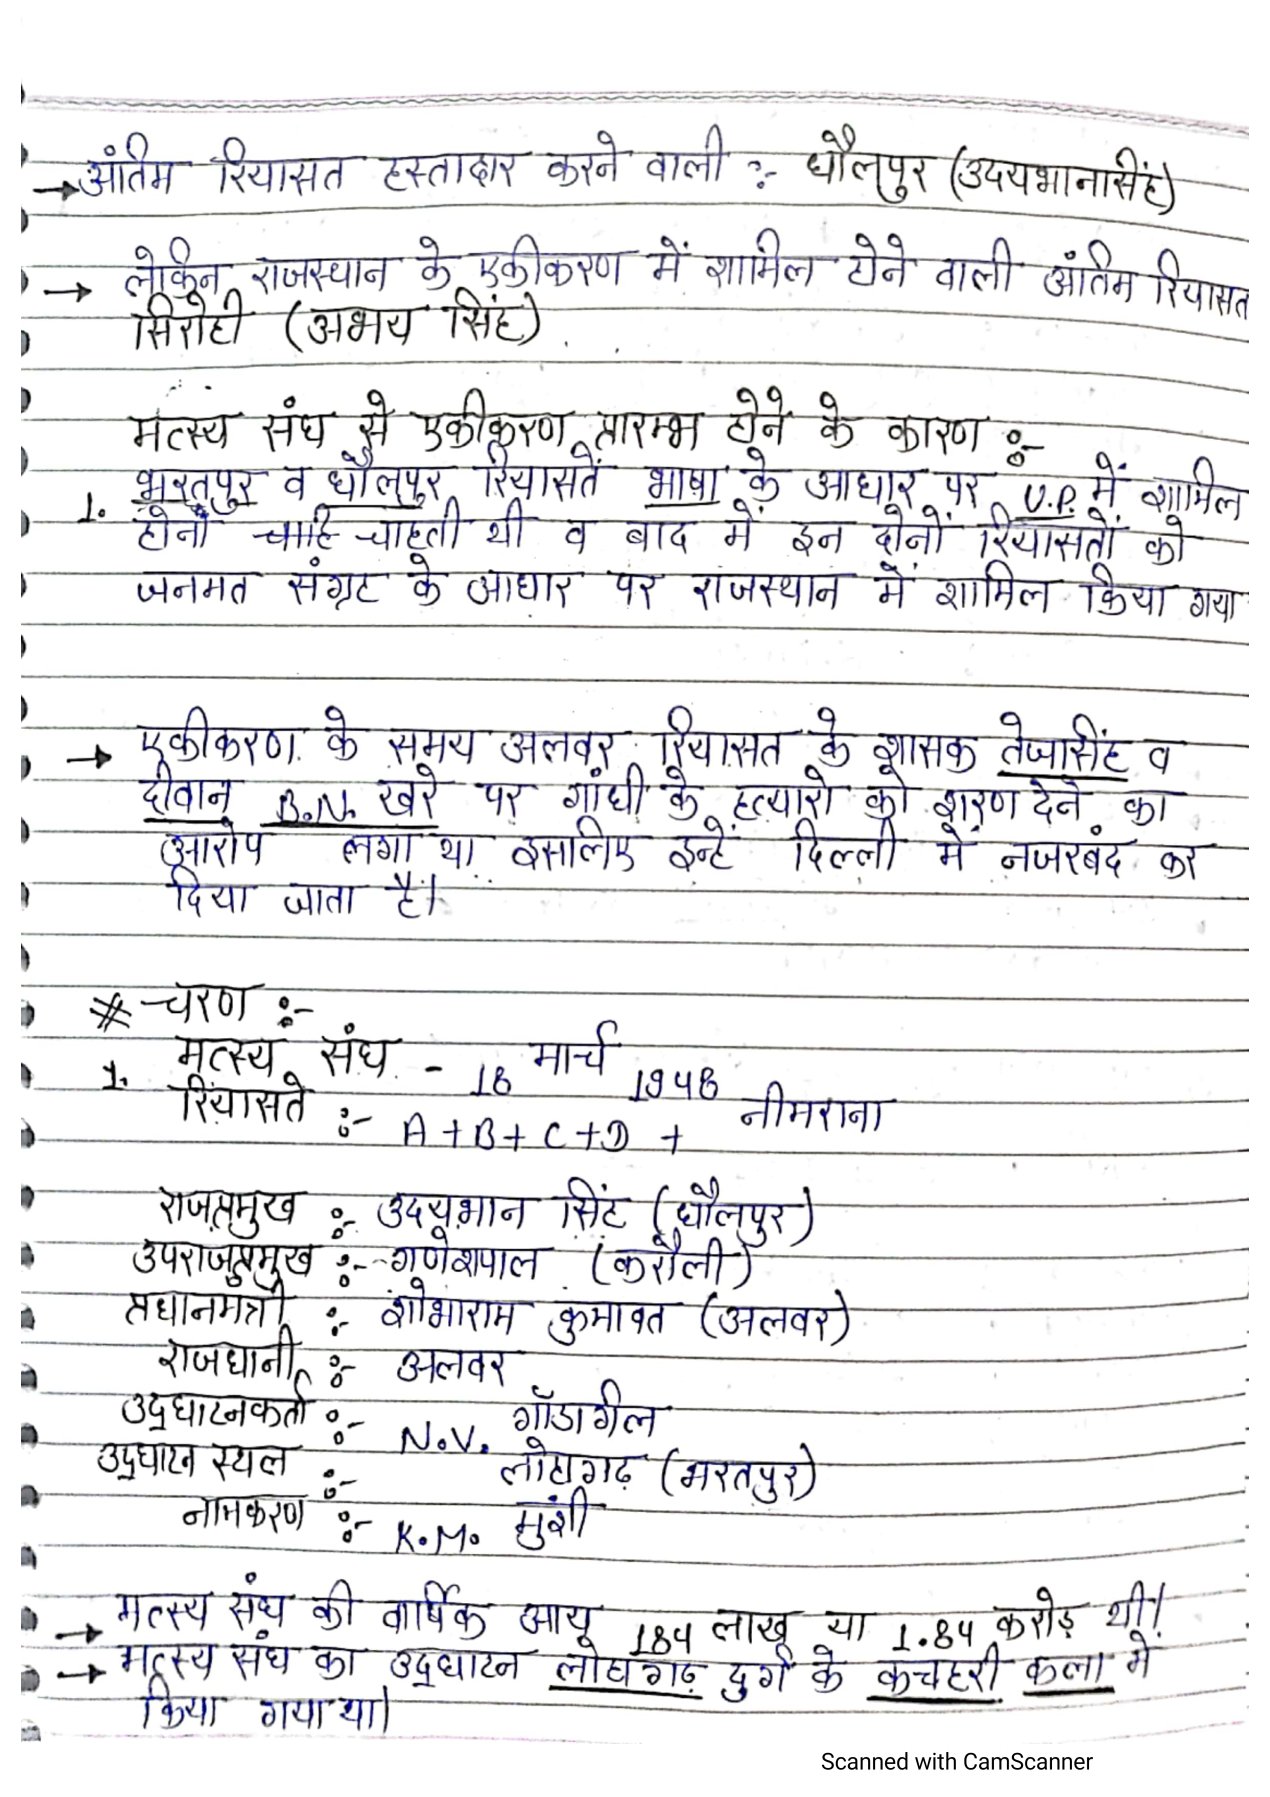 → अंतिम रियासत हस्ताक्षर करने वाली :- धौलपुर (उदयभानसिंह)
→ लेकिन राजस्थान के एकीकरण में शामिल होने वाली अंतिम रियासत
सिरोही (अभय सिंह)
मत्स्य संघ से एकीकरण प्रारम्भ होने के कारण :-
1. भरतपुर व धौलपुर रियासतें भाषा के आधार पर U.P. में शामिल
होना चाहती थी व बाद में इन दोनों रियासतों को
जनमत संग्रह के आधार पर राजस्थान में शामिल किया गया
→ एकीकरण के समय अलवर रियासत के शासक तेजसिंह व
दीवान B.N. खरे पर गांधी के हत्यारो को शरण देने का
आरोप लगा था इसलिए इन्हें दिल्ली में नजरबंद कर
दिया जाता है।
* चरण :-
1. मत्स्य संघ - 18 मार्च 1948
रियासते :- A+B+C+D + नीमराना
राजप्रमुख :- उदयभान सिंह (धौलपुर)
उपराजप्रमुख :- गणेशपाल (करौली)
प्रधानमंत्री :- शोभाराम कुमावत (अलवर)
राजधानी :- अलवर
उद्घाटनकर्ता :- N.V. गॉडगील
उद्घाटन स्थल :- लोहागढ़ (भरतपुर)
नामकरण :- K.M. मुंशी
→ मत्स्य संघ की वार्षिक आय 184 लाख या 1.84 करोड़ थी।
→ मत्स्य संघ का उद्घाटन लोहागढ़ दुर्ग के कचहरी कला में
किया गया था।
Scanned with CamScanner